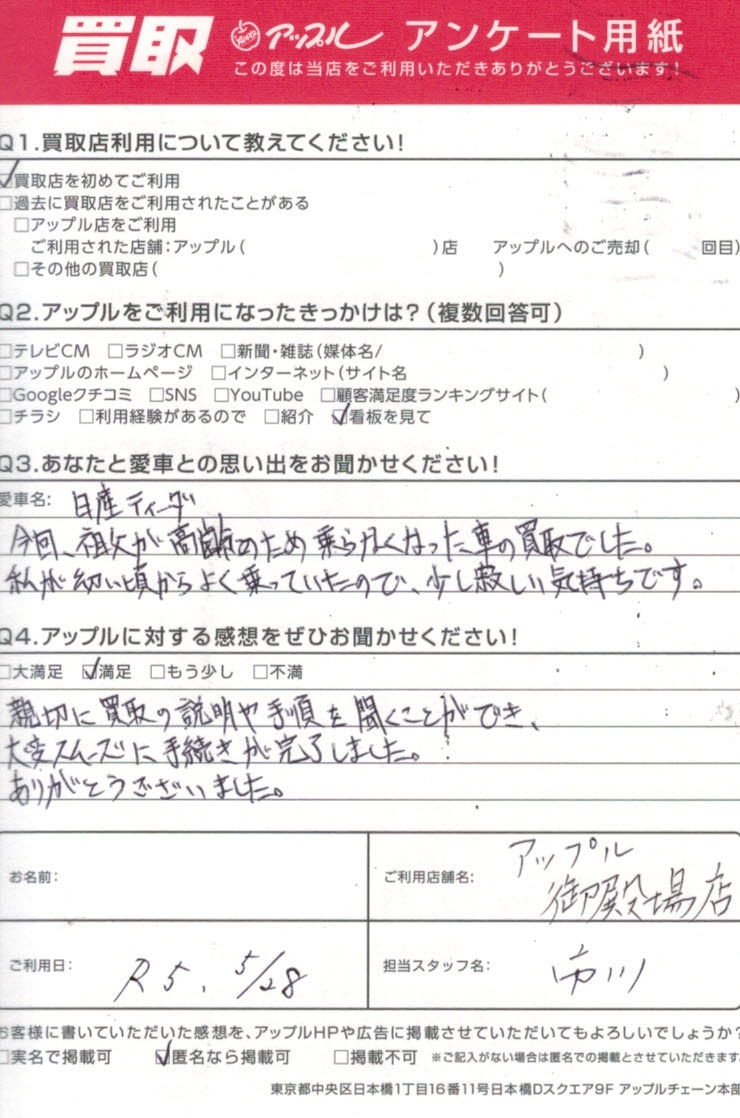 買取 アップル アンケート用紙
この度は当店をご利用いただきありがとうございます!
Q1.買取店利用について教えてください!
☑買取店を初めてご利用
□過去に買取店をご利用されたことがある
□アップル店をご利用
ご利用された店舗:アップル( )店 アップルへのご売却( 回目)
□その他の買取店( )
Q2.アップルをご利用になったきっかけは?(複数回答可)
□テレビCM □ラジオCM □新聞・雑誌(媒体名/ )
□アップルのホームページ □インターネット(サイト名 )
□Googleクチコミ □SNS □YouTube □顧客満足度ランキングサイト( )
□チラシ □利用経験があるので □紹介 ☑看板を見て
Q3.あなたと愛車との思い出をお聞かせください!
愛車名: 日産ティーダ
今回、祖父が高齢のため乗らなくなった車の買取でした。
私が幼い頃からよく乗っていたので、少し寂しい気持ちです。
Q4.アップルに対する感想をぜひお聞かせください!
□大満足 ☑満足 □もう少し □不満
親切に買取の説明や手順を聞くことができ、
大変スムーズに手続きが完了しました。
ありがとうございました。
お名前:
ご利用店舗名: アップル
御殿場店
ご利用日: R5. 5/28
担当スタッフ名: 市川
お客様に書いていただいた感想を、アップルHPや広告に掲載させていただいてもよろしいでしょうか?
□実名で掲載可 ☑匿名なら掲載可 □掲載不可 ※ご記入がない場合は匿名での掲載とさせていただきます。
東京都中央区日本橋1丁目16番11号日本橋Dスクエア9F アップルチェーン本部